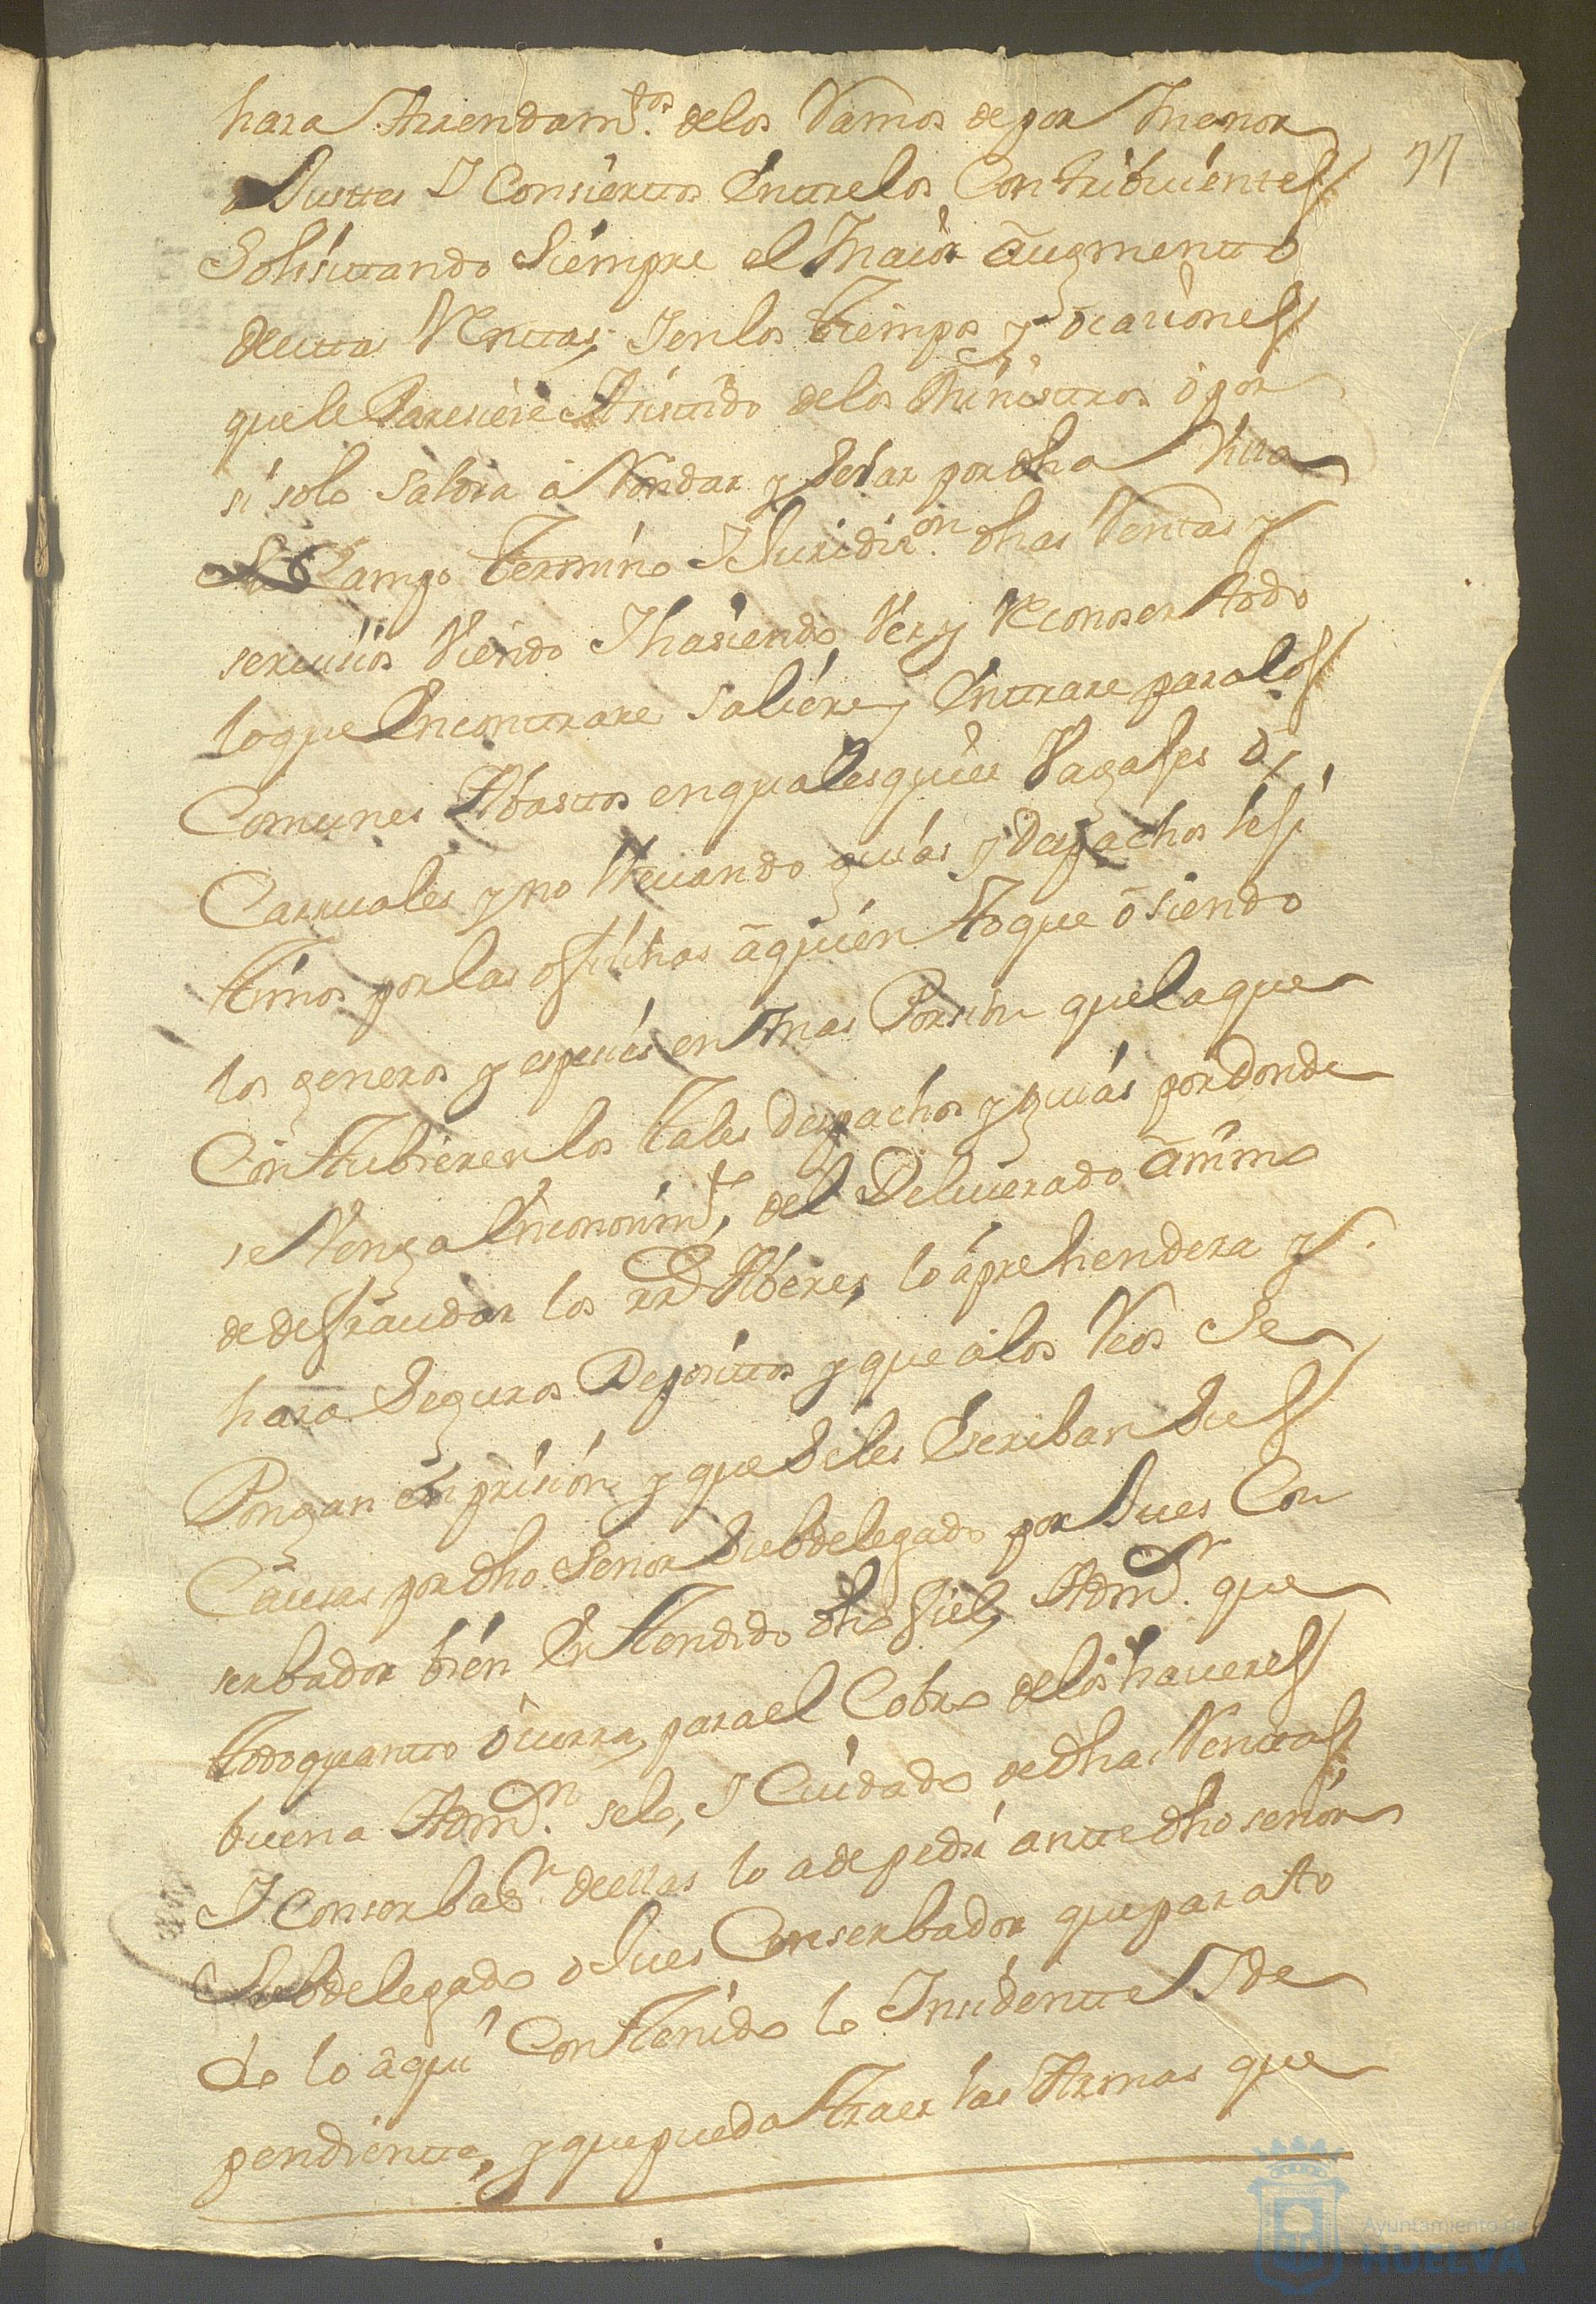 hara Arrendam.tos delos Ramos de por Menor
77
Ajustes I Consiertos Entrelos Contribuientes
Solisitando Siempre el Maior augmento
de esta Rentas, I en los tiempos y ocaciones
que le Paresiere Asistido delos Ministros o por
si solo saldra a Rondar y selar por dha Villa
su Campo termino I Juridi.on dhas Rentas y
serbisios Viendo I hasiendo Ver y Reconoser todo
loque Encontrare saliere y Entrare para los
Comunes Abastos enqualesquier Vagajes o
Carruajes y no llevando guias y Despachos lexi
timos por las ofisinas aquien toque o siendo
los generos y espesies en mas Porsion quela que
Contubieren los tales Despachos y guias pordonde
se Venga Enconosim.to del Deliverado animo
de defraudar los rr.s Aberes, lo aprehendera y
hara Seguros Depositos y que alos Reos Se
Pongan en prision y que Seles Escriban Sus
Causas por dho Señor Subdelegado por Jues Con
serbador bien Entendido dho fiel, Adm.r que
todo quanto ocurra, para el Cobro de los haveres
buena Adm.n selo, I Cuidado de dhas Rentas
I Conserbas.n de ellas lo a de pedir ante dho señor
Subdelegado o Jues Conserbador que para to
do lo aqui Contenido lo Insidente I de
pendiente, y que pueda traer las Armas que
Ayuntamiento de
HUELVA